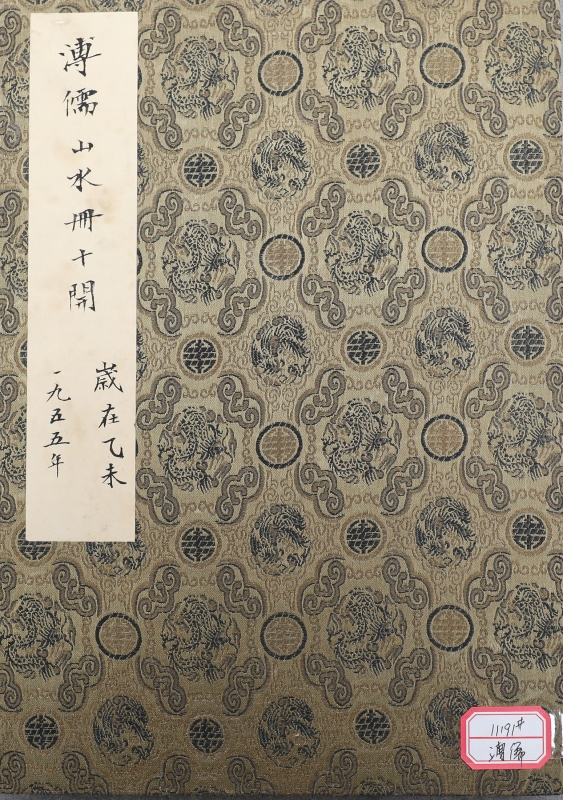 溥儒山水冊十開
歲在乙未
一九五五年
11191#
溥儒